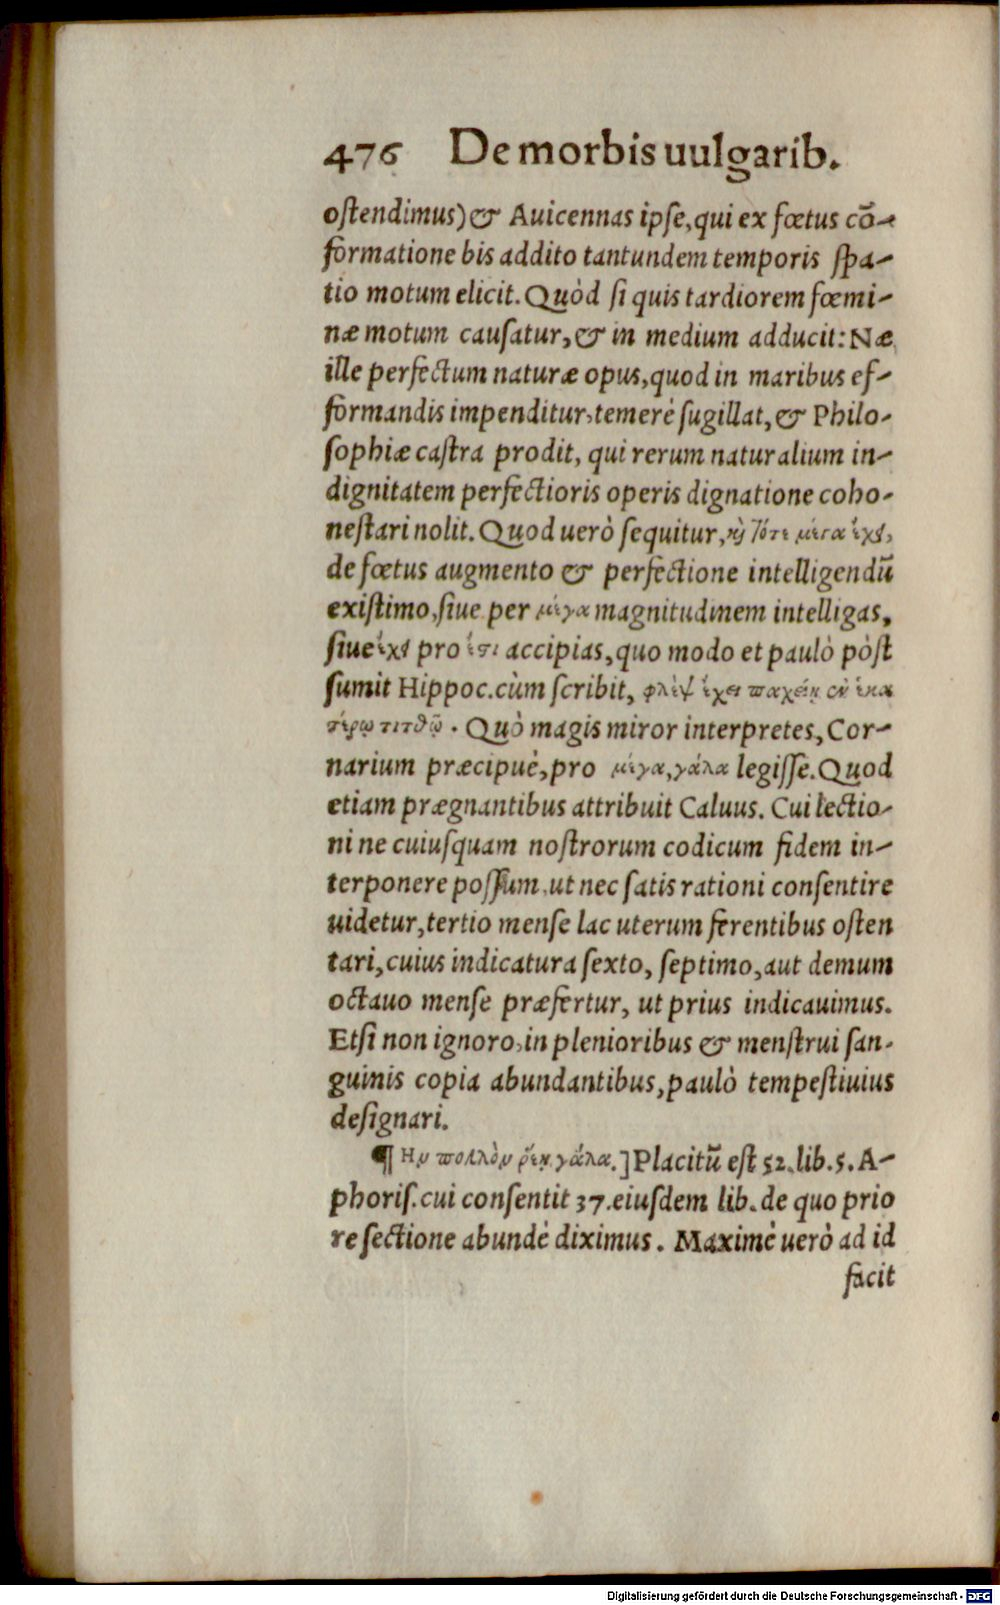 476 De morbis uulgarib.
ostendimus) & Auicennas ipse, qui ex fœtus cō-
formatione bis addito tantundem temporis spa-
tio motum elicit. Quòd si quis tardiorem fœmi-
næ motum causatur, & in medium adducit: Næ
ille perfectum naturæ opus, quod in maribus ef-
formandis impenditur, temerè sugillat, & Philo-
sophiæ castra prodit, qui rerum naturalium in-
dignitatem perfectioris operis dignatione coho-
nestari nolit. Quod uerò sequitur, καὶ τότε μέγα ἔχει,
de fœtus augmento & perfectione intelligendū
existimo, siue per μέγα magnitudinem intelligas,
siue ἔχει pro ἔστι accipias, quo modo et paulò pòst
sumit Hippoc. cùm scribit, φλὲψ ἔχει παχέιη ἐν ἑκα
τέρῳ τιτθῷ. Quò magis miror interpretes, Cor-
narium præcipuè, pro μέγα, γάλα legisse. Quod
etiam prægnantibus attribuit Caluus. Cui lectio-
ni ne cuiusquam nostrorum codicum fidem in-
terponere possum, ut nec satis rationi consentire
uidetur, tertio mense lac uterum ferentibus osten
tari, cuius indicatura sexto, septimo, aut demum
octauo mense præfertur, ut prius indicauimus.
Etsi non ignoro, in plenioribus & menstrui san-
guinis copia abundantibus, paulò tempestiuius
designari.
¶ Ην πολλὸν ῥέῃ γάλα.] Placitū est 52. lib. 5. A-
phoris. cui consentit 37. eiusdem lib. de quo prio
re sectione abundè diximus. Maximè uerò ad id
facit
Digitalisierung gefördert durch die Deutsche Forschungsgemeinschaft - DFG